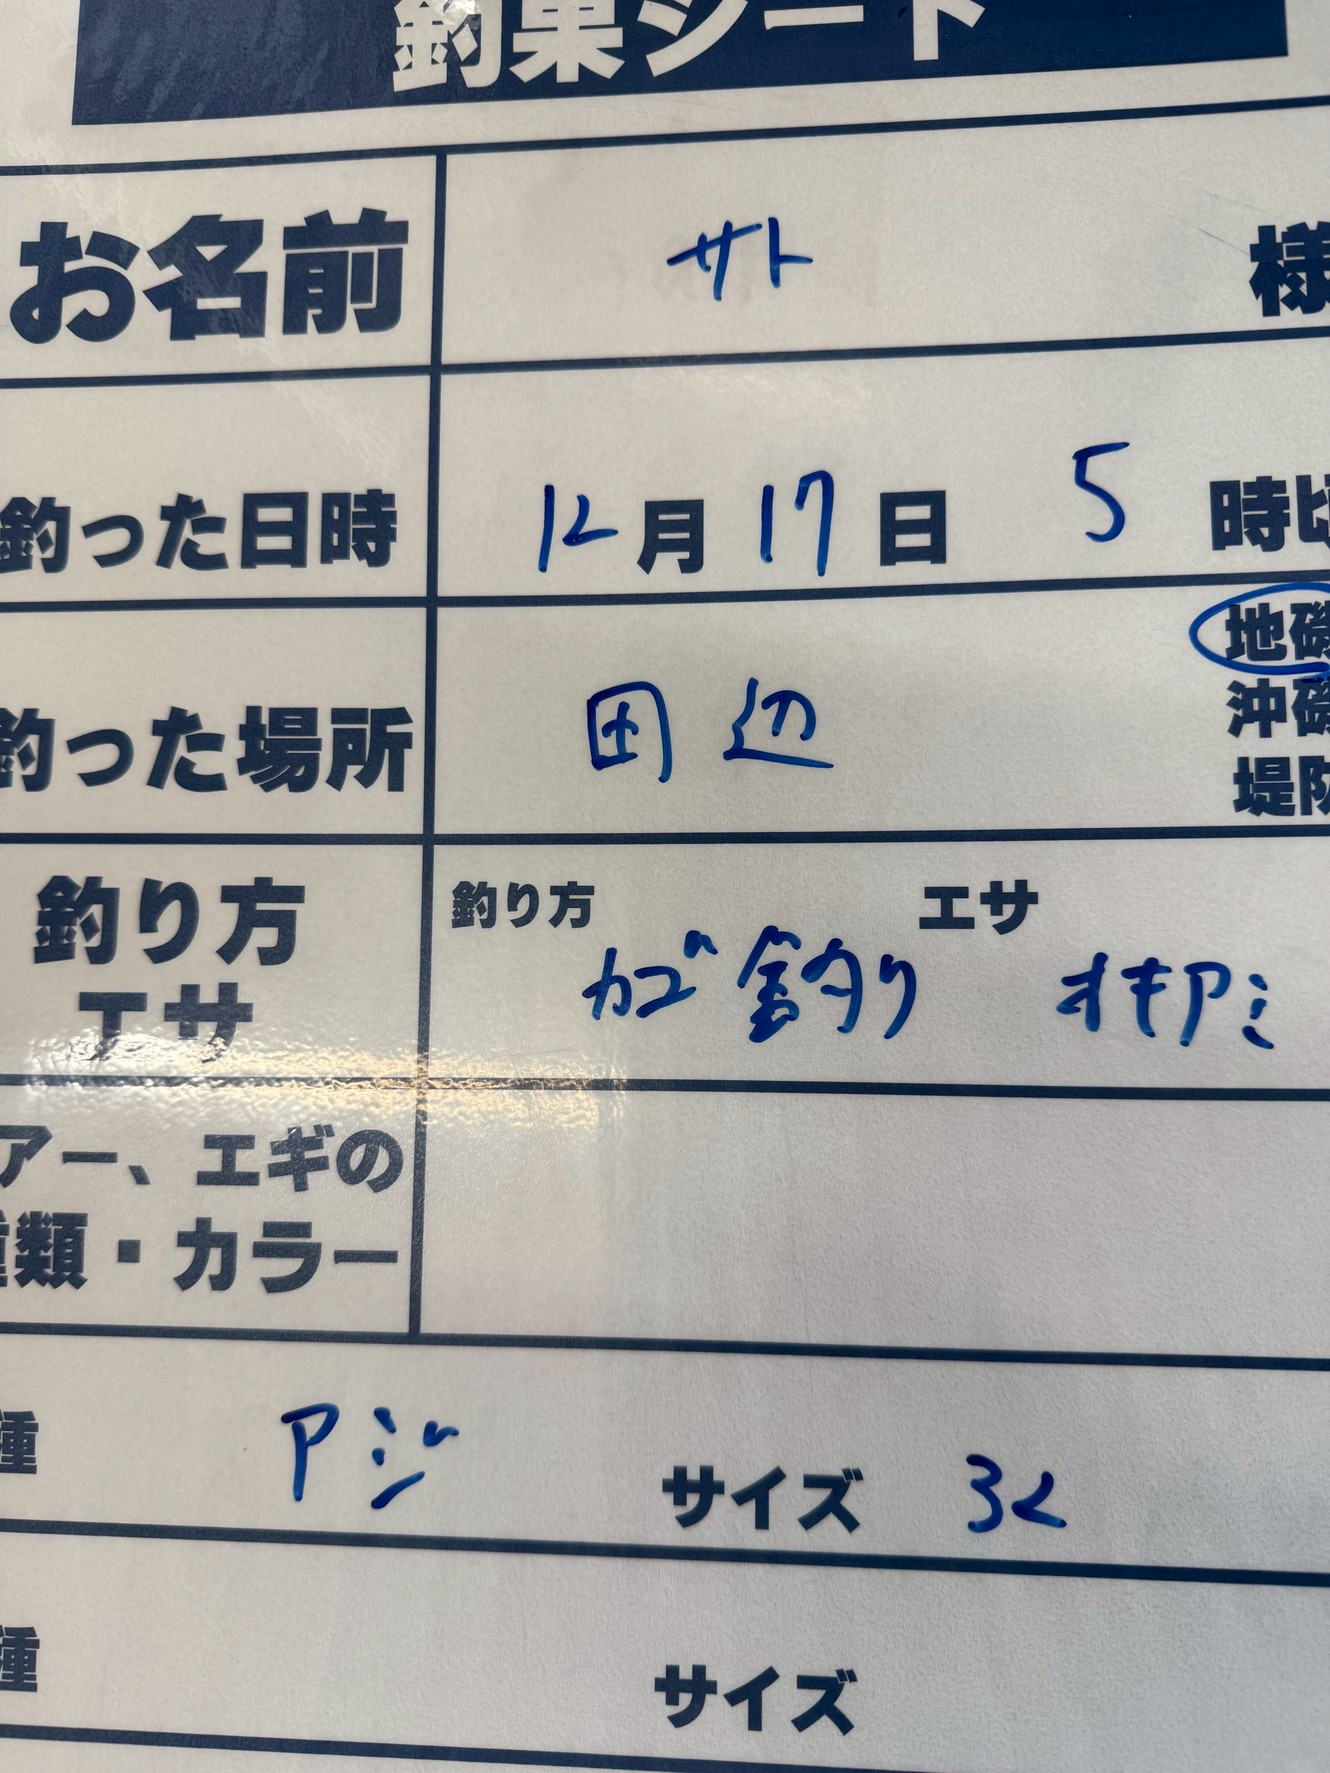 釣果シート
お名前 サト 様
釣った日時 12月17日 5時頃
地磯
釣った場所 田辺 沖磯
堤防
釣り方 エサ
釣り方 カゴ釣り オキアミ
エサ
アー、エギの
種類・カラー
種 アジ サイズ 32
種 サイズ